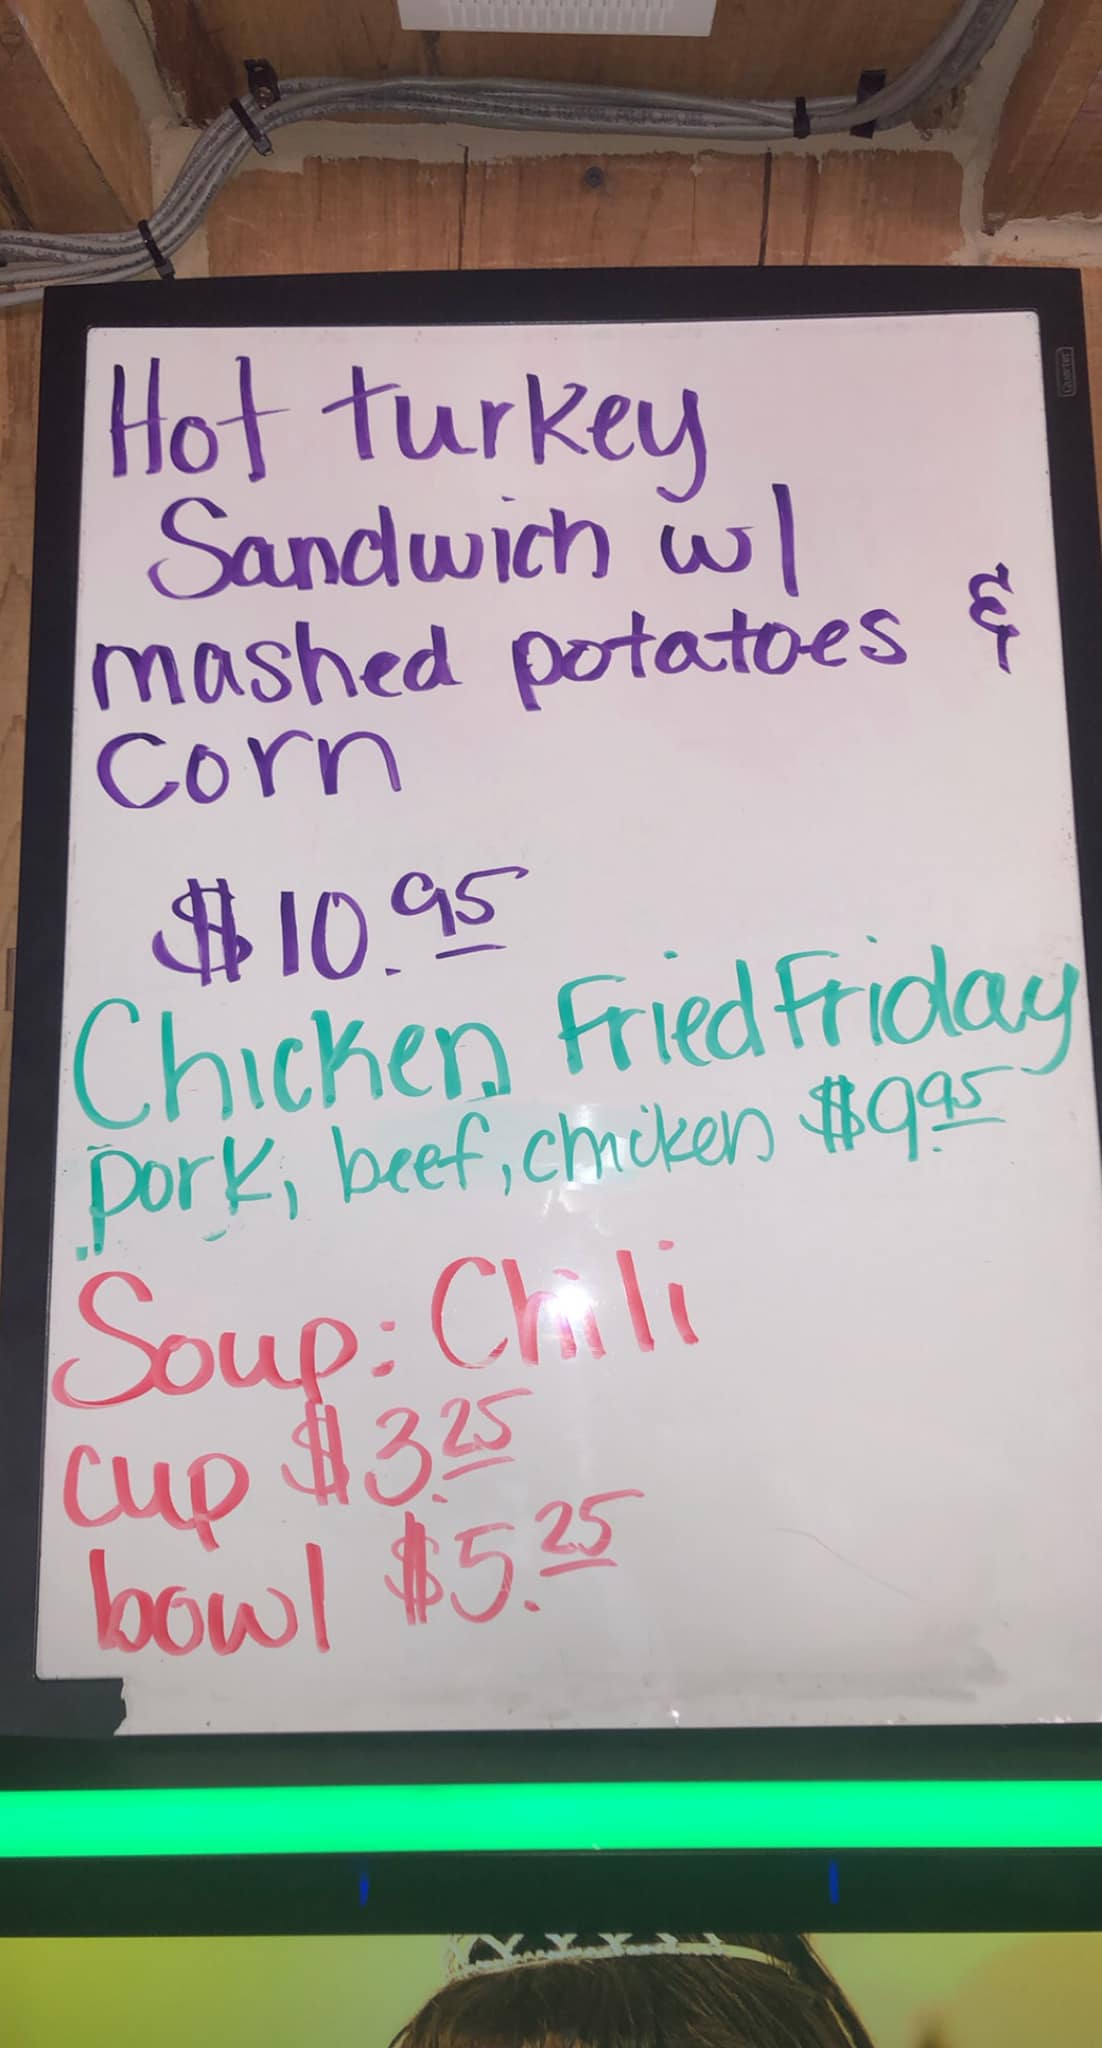 Hot turkey
Sandwich w/
mashed potatoes &
Corn
$10.95
Chicken Fried Friday
pork, beef, chicken $9.95
Soup: Chili
cup $3.25
bowl $5.25